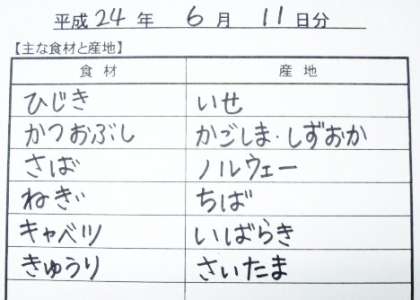 平成 24 年 6 月 11 日分
【主な食材と産地】
食材 産地
ひじき いせ
かつおぶし かごしま・しずおか
さば ノルウェー
ねぎ ちば
キャベツ いばらき
きゅうり さいたま